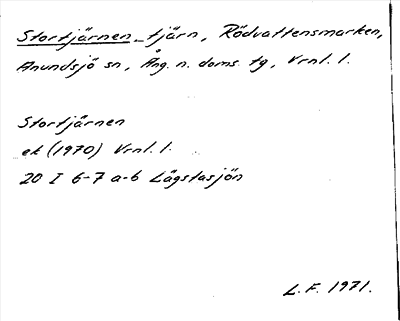 Stortjärnen - tjärn, Rödvattensmarken,
Anundsjö sn, Ång. n. doms. tg, Vrnl. l.
Stortjärnen
ek (1970) Vrnl. l.
20 I 6-7 a-b Lägstasjön
L.F. 1971.